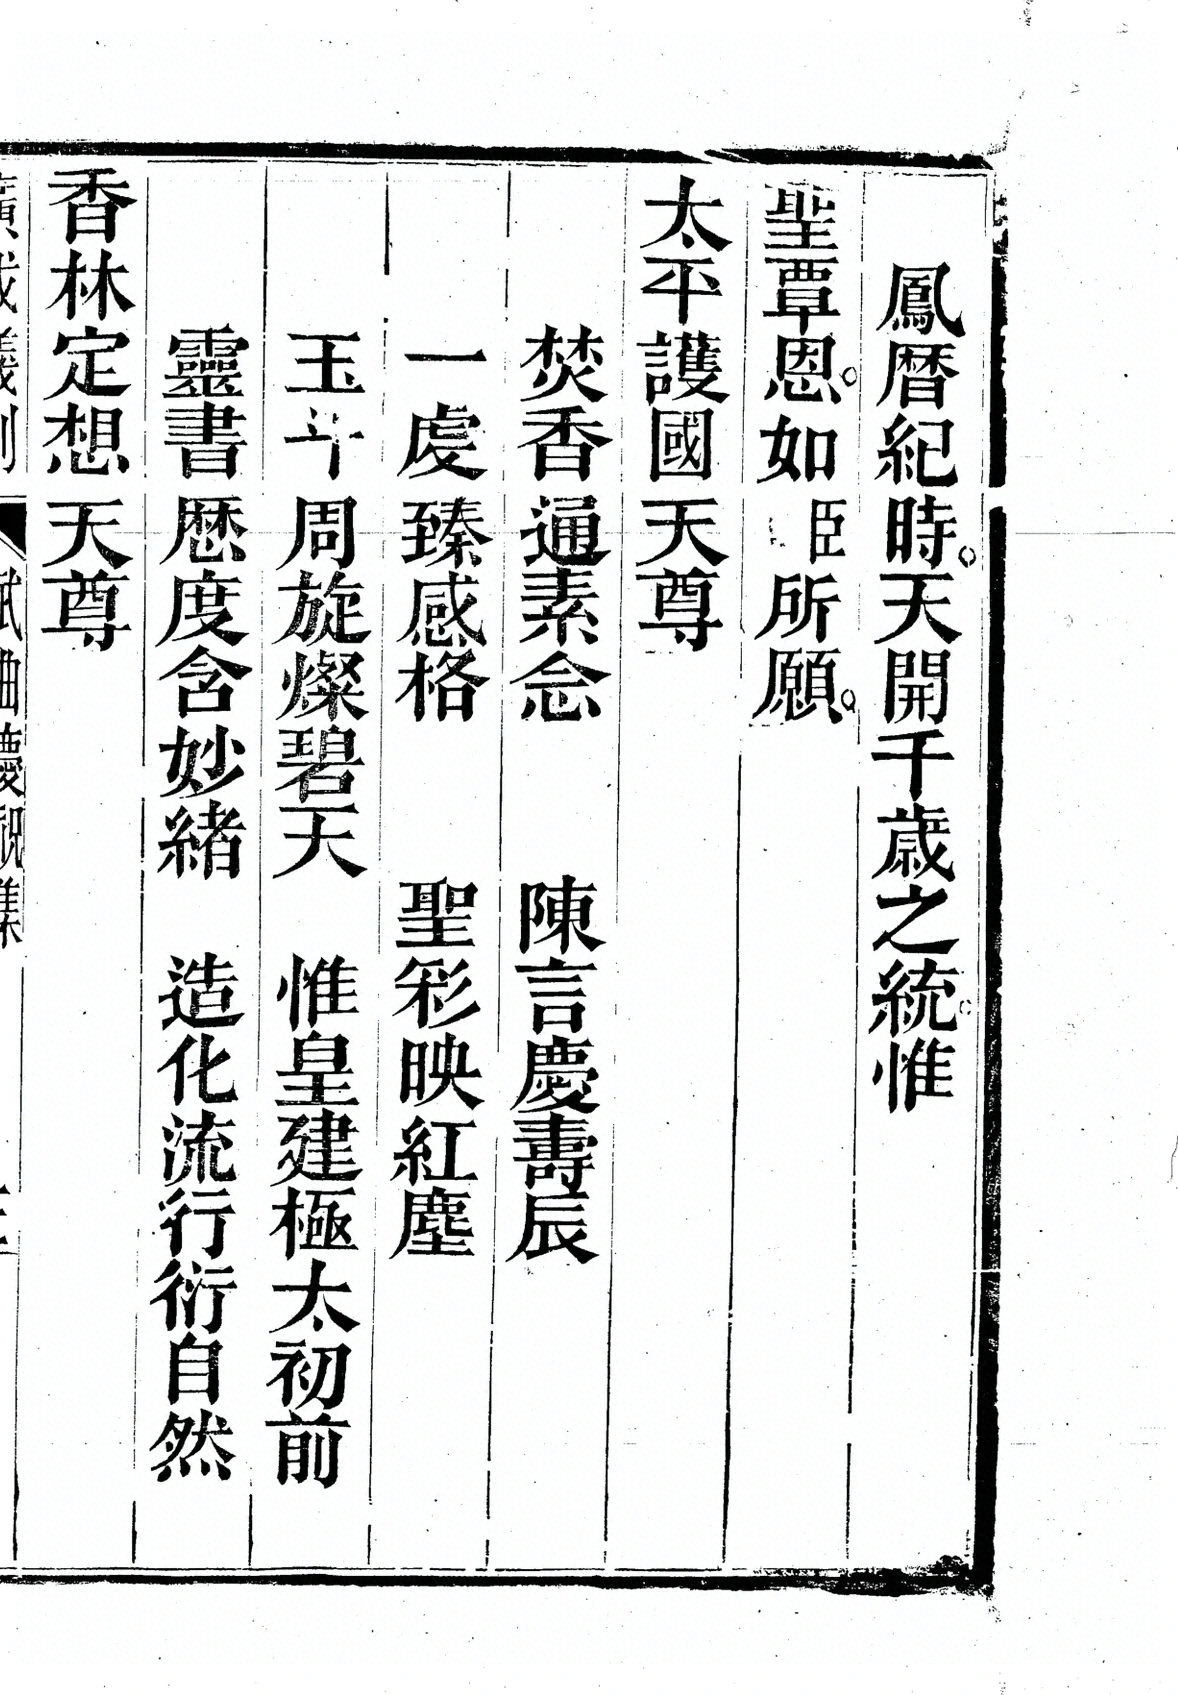 鳳暦紀時。天開千歲之統。惟
聖覃恩。如臣所願。
太平護國天尊
焚香通素念　陳言慶壽辰
一處臻感格　聖彩映紅塵
玉斗周旋燦碧天　惟皇建極太初前
靈書厯度含妙緒　造化流行衍自然
香林定想天尊
廣成儀制　武曲慶祝集　三